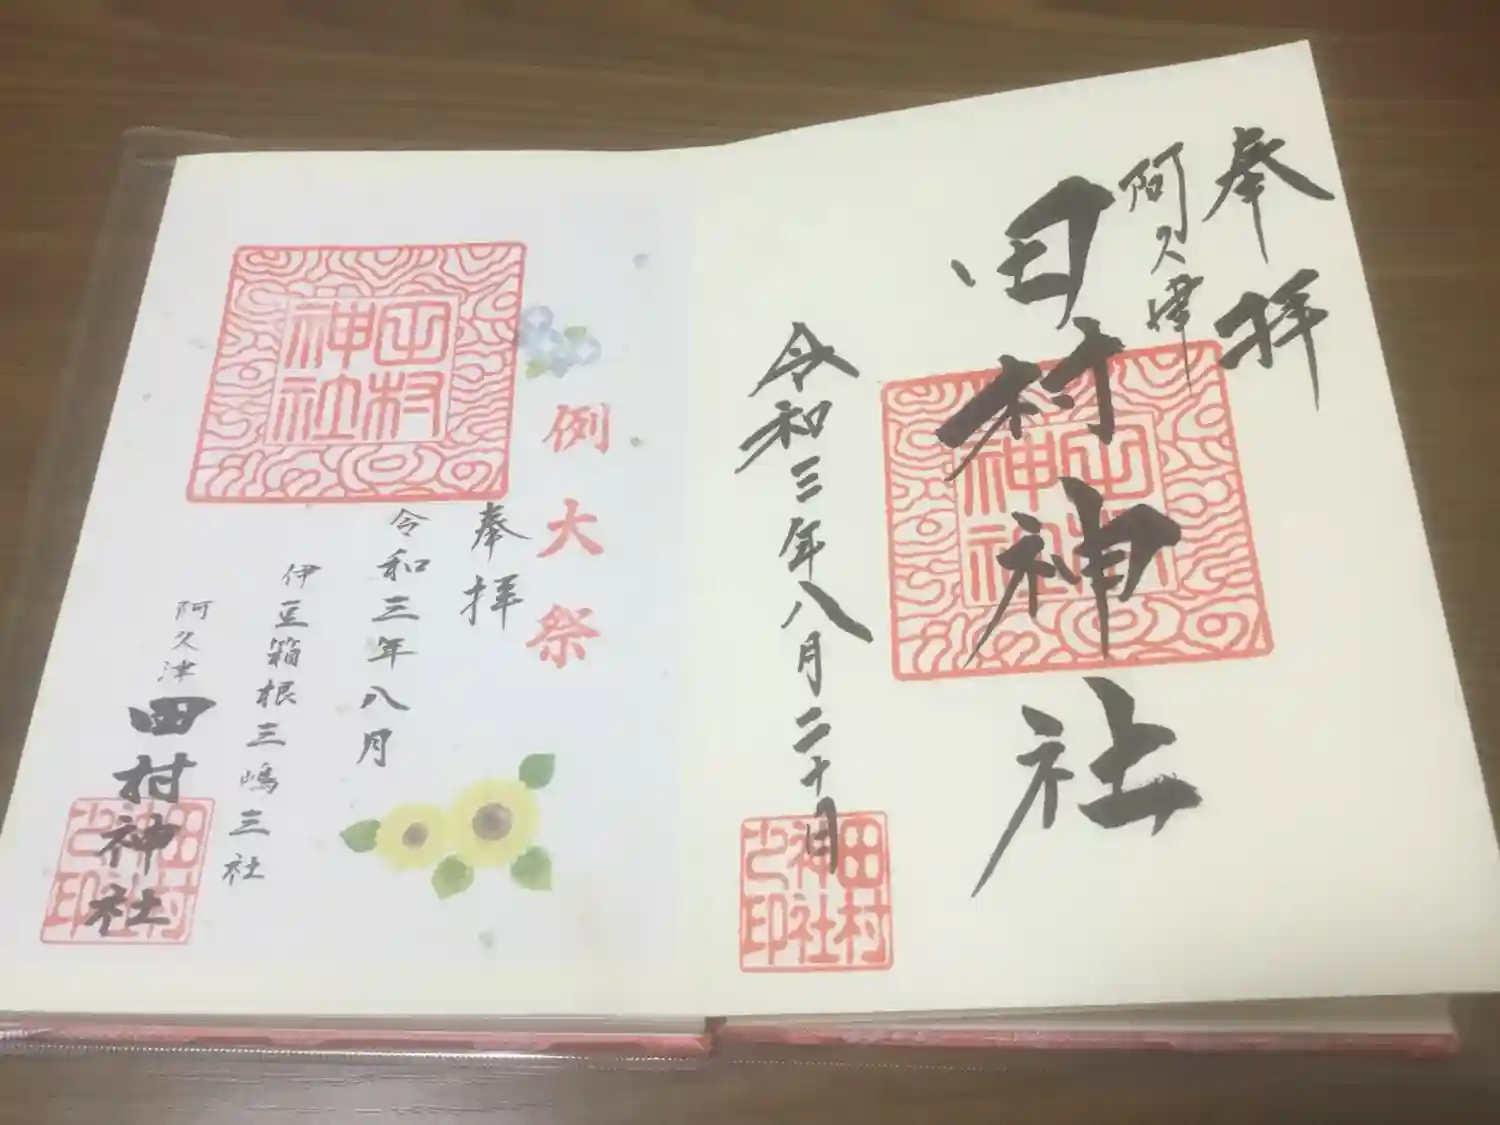 奉拝
阿久津
田村神社
田村神社
令和三年八月二十日
田村神社之印
例大祭
田村神社
奉拝
令和三年八月
伊豆箱根三嶋三社
阿久津
田村神社
田村神社之印